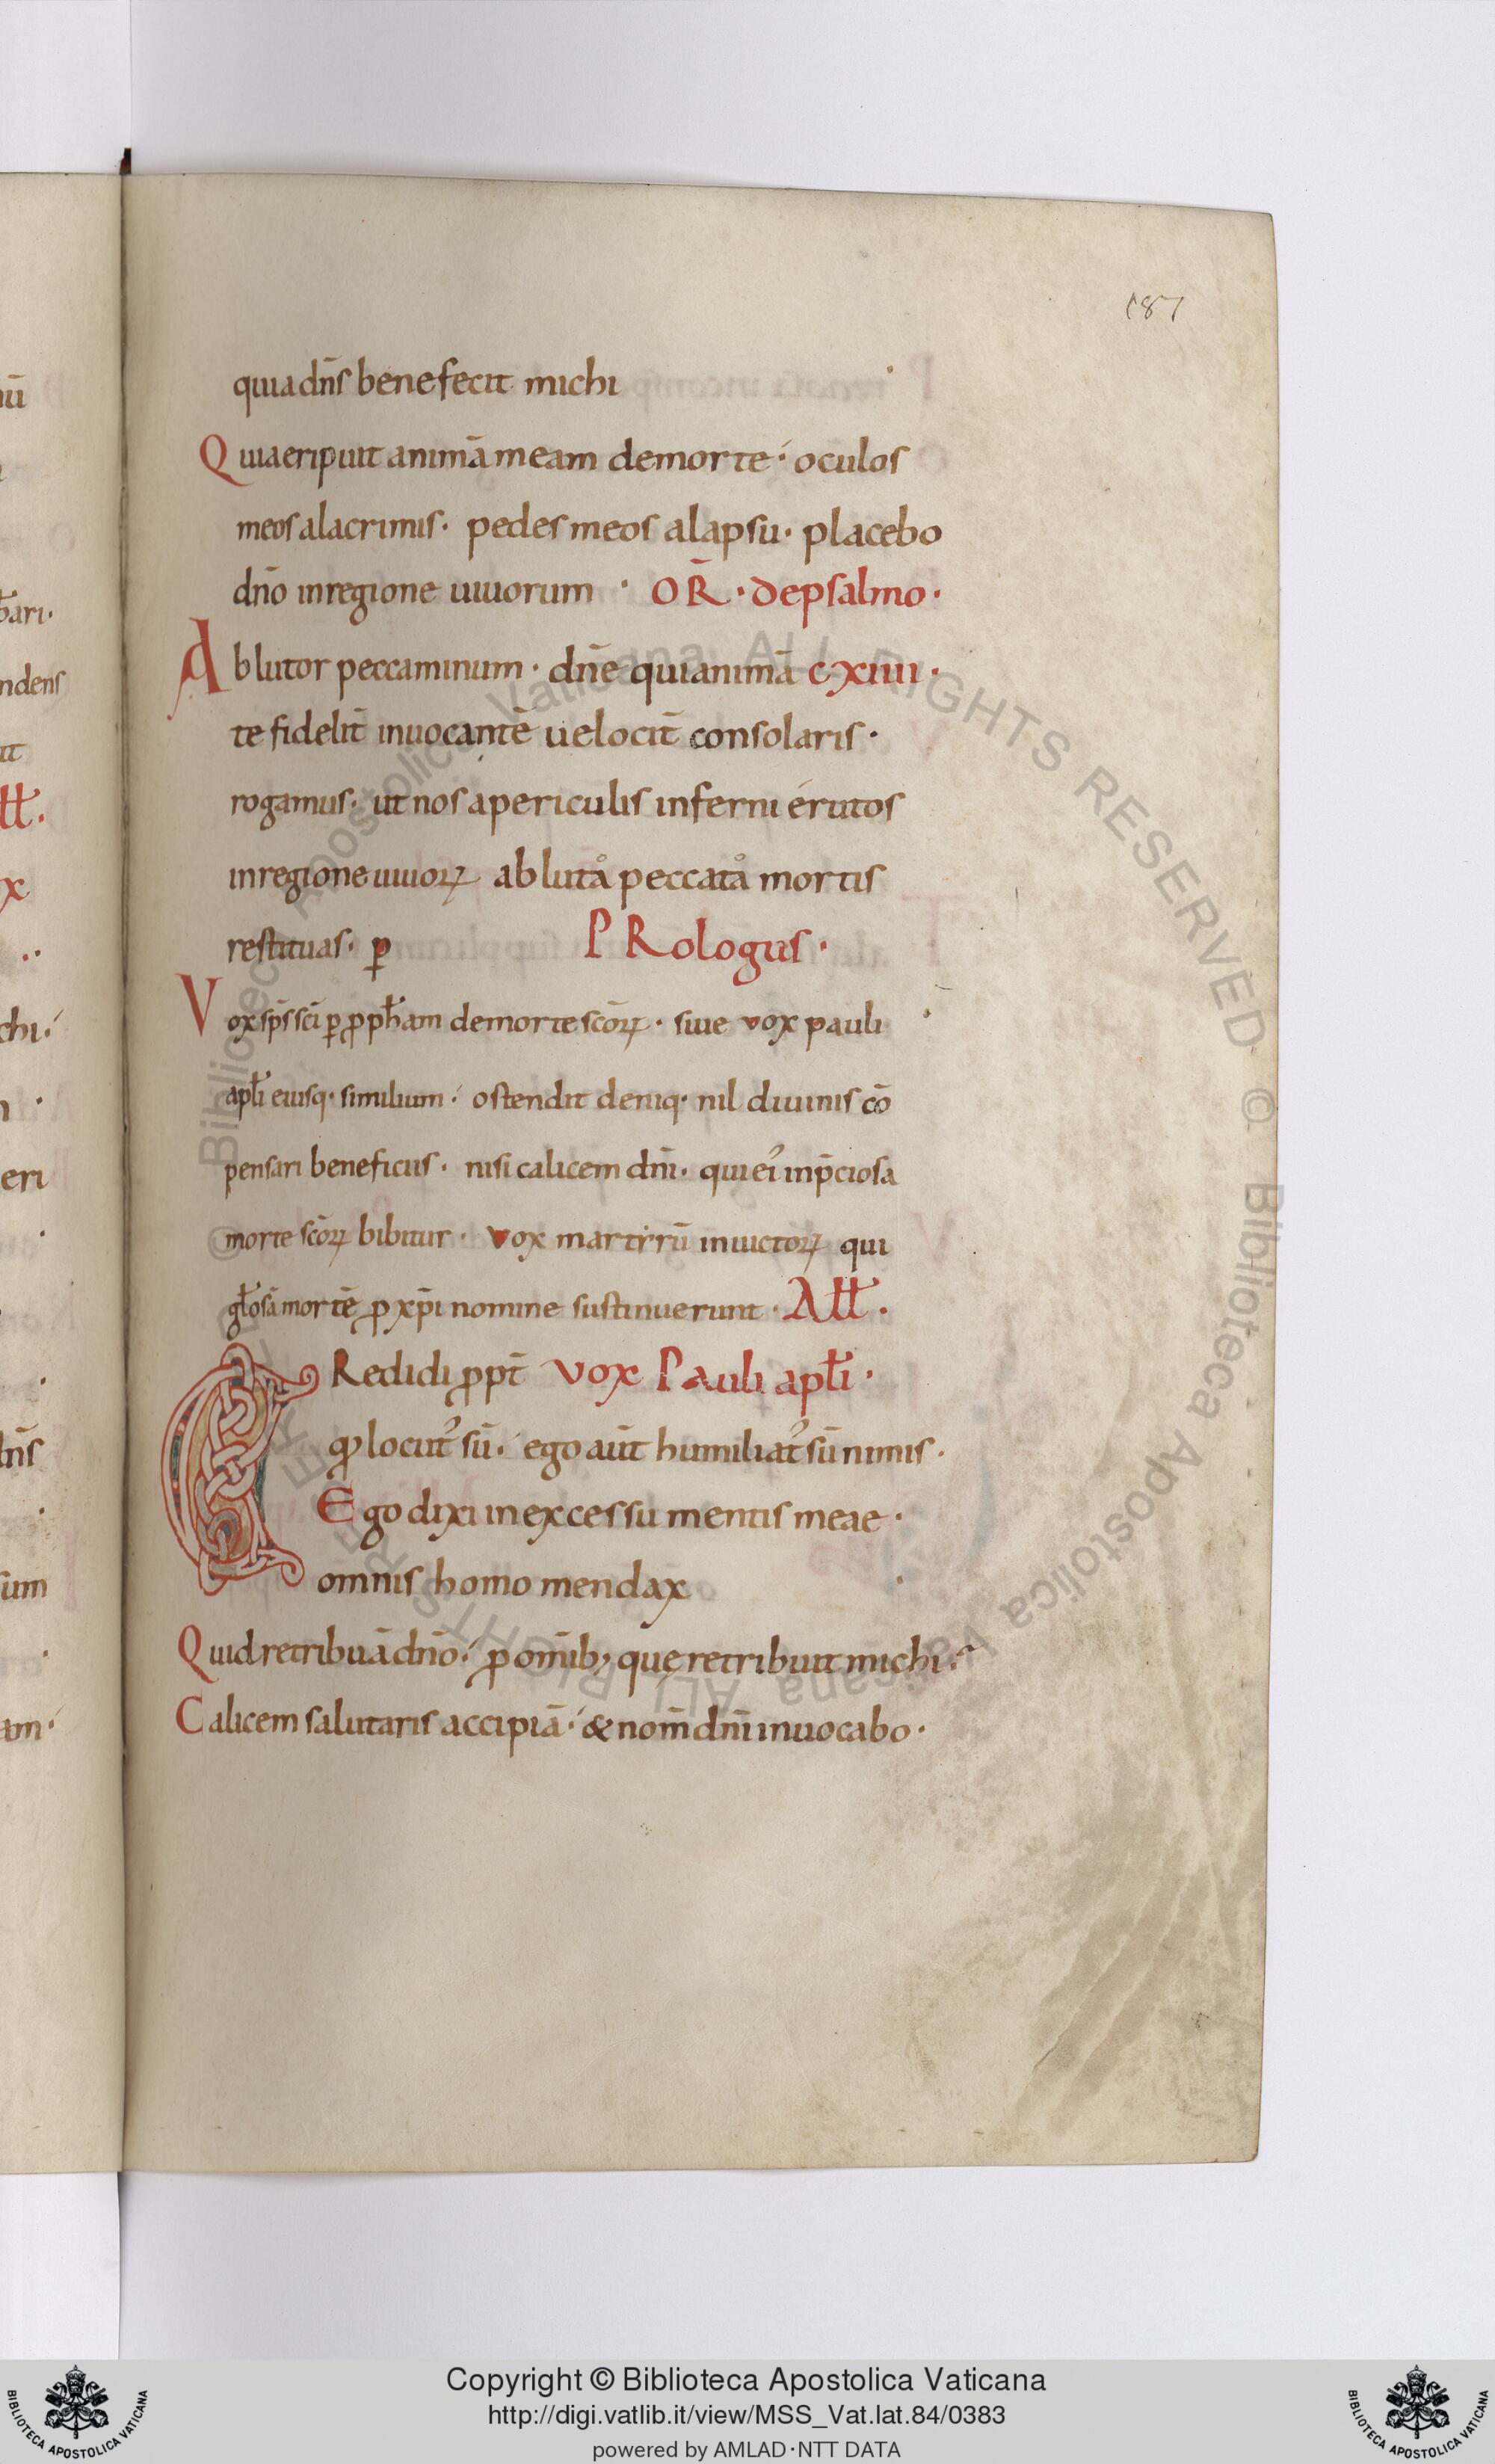 187
quia dn̄s benefecit michi
Quia eripuit animā meam de morte· oculos
meos a lacrimis· pedes meos a lapsu· placebo
dn̄o in regione uiuorum · OR̄· de psalmo·
Ablutor peccaminum· dn̄e qui animā cxiiii·
te fidelit̄ inuocantē uelocit̄ consolaris·
rogamus· ut nos a periculis inferni erutos
in regione uiuoꝝ ab luta peccata mortis
restituas· ꝑ PRologus·
Vox sp̄s sc̄i ꝑ ꝓph̄am de morte sc̄oꝝ· siue vox pauli
apl̄i eiusq· similium· ostendit deniq· nil diuinis cō
pensari beneficiis· nisi calicem dn̄i· qui ei' in p̄ciosa
morte sc̄oꝝ bibitur· Vox martirū inuictoꝝ qui
gl̄osā mortē ꝓ xp̄i nomine sustinuerunt· All̄·
CRedidi ꝓpt̄ vox Pauli apl̄i·
qꝺ locut' sū· ego aūt humiliat' sū nimis·
Ego dixi in excessu mentis meae·
omnis homo mendax
Quid retribuā dn̄o· ꝓ om̄ib; quę retribuit michi·
Calicem salutaris accipiā· & nom̄ dn̄i inuocabo·
Copyright © Biblioteca Apostolica Vaticana
http://digi.vatlib.it/view/MSS_Vat.lat.84/0383
powered by AMLAD·NTT DATA
BIBLIOTECA APOSTOLICA VATICANA
BIBLIOTECA APOSTOLICA VATICANA